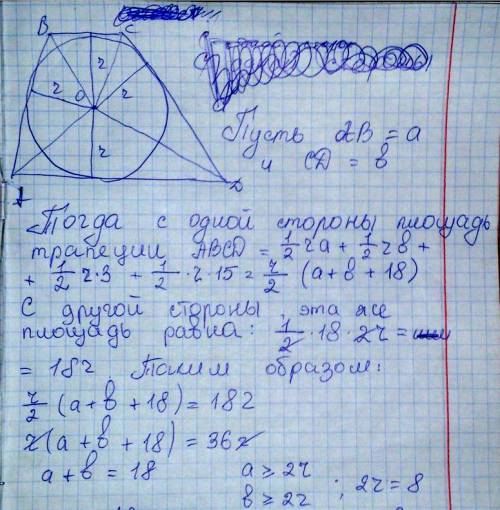 B C
r r
O
r
A D
Пусть AB = a
и CD = b
Тогда с одной стороны площадь
трапеции ABCD = 1/2 ra + 1/2 rb +
+ 1/2 r·3 + 1/2 · r · 15 = r/2 (a + b + 18)
С другой стороны, эта же
площадь равна: 1/2 · 18 · 2r =
= 18r. Таким образом:
r/2 (a + b + 18) = 18r
r(a + b + 18) = 36r
a + b = 18 a ≥ 2r
b ≥ 2r ; 2r = 8